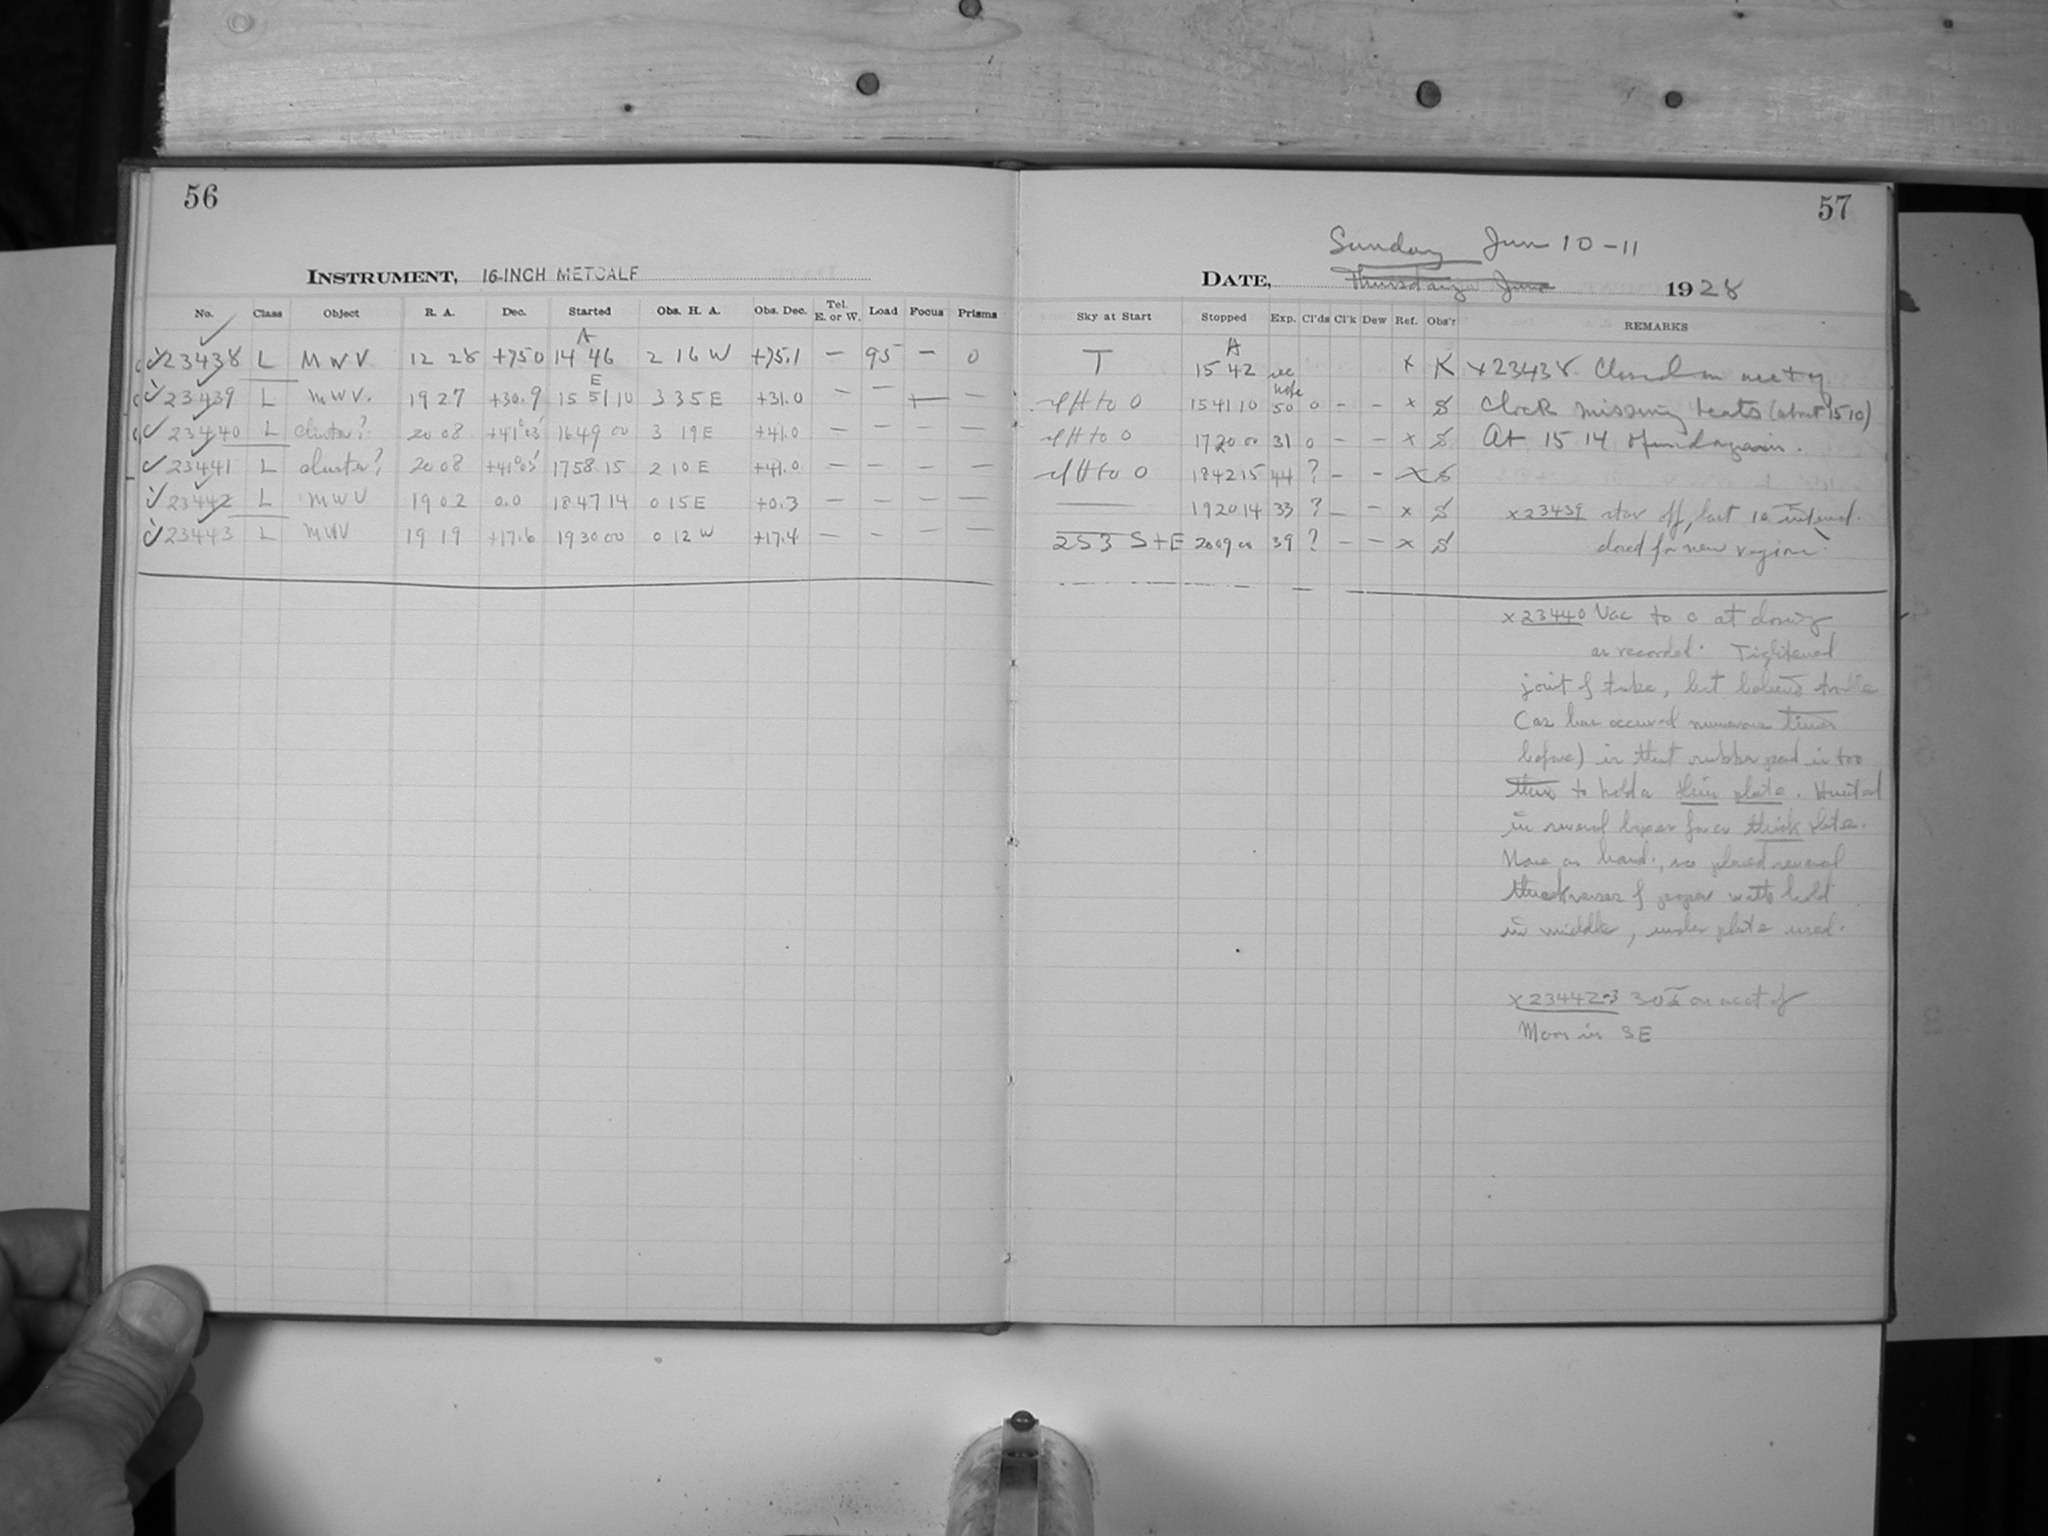 56
INSTRUMENT, 16-INCH METCALF
No. Class Object R. A. Dec. Started Obs. H. A. Obs. Dec. Tel. E. or W. Load Focus Prisms
A
23438 L MWV 12 28 +75.0 14 46 2 16 W +75.1 — 95 — 0
E
23439 L MWV. 19 27 +30.9 15 51 10 3 35 E +31.0 — — — —
23440 L cluster? 20 08 +41°03' 16 49 00 3 19 E +41.0 — — — —
23441 L cluster? 20 08 +41°03' 17 58 15 2 10 E +41.0 — — — —
23442 L MWV 19 02 0.0 18 47 14 0 15 E +0.3 — — — —
23443 L MWV 19 19 +17.6 19 30 00 0 12 W +17.4 — - — —
57
Sunday Jun 10-11
DATE, Thursday June 1928
Sky at Start Stopped Exp. Cl'ds Cl'k Dew Ref. Obs'r REMARKS
A
T 15 42 see note x K x23438 Closed on acct of
to 0 15 41 10 50 0 - - x S Clock missing beats (about 15 10)
to 0 17 20 00 31 0 - - x S At 15 14 opened again.
to 0 18 42 15 44 ? - - x S
—— 19 20 14 33 ? - - x S x23439 star off, last 10
253 S+E 20 09 00 39 ? - - x S closed for new region.
x23440 Vac to 0 at closing
as recorded. Tightened
joint of tube, but believe trouble
(as has occurred numerous times
before) is that rubber pad is too
thin to hold a thin plate. Hunted
in several boxes for a thick plate.
None on hand, so placed several
thicknesses of paper with
in middle, under plate used.
x23442-3 30 on acct of
Moon in SE